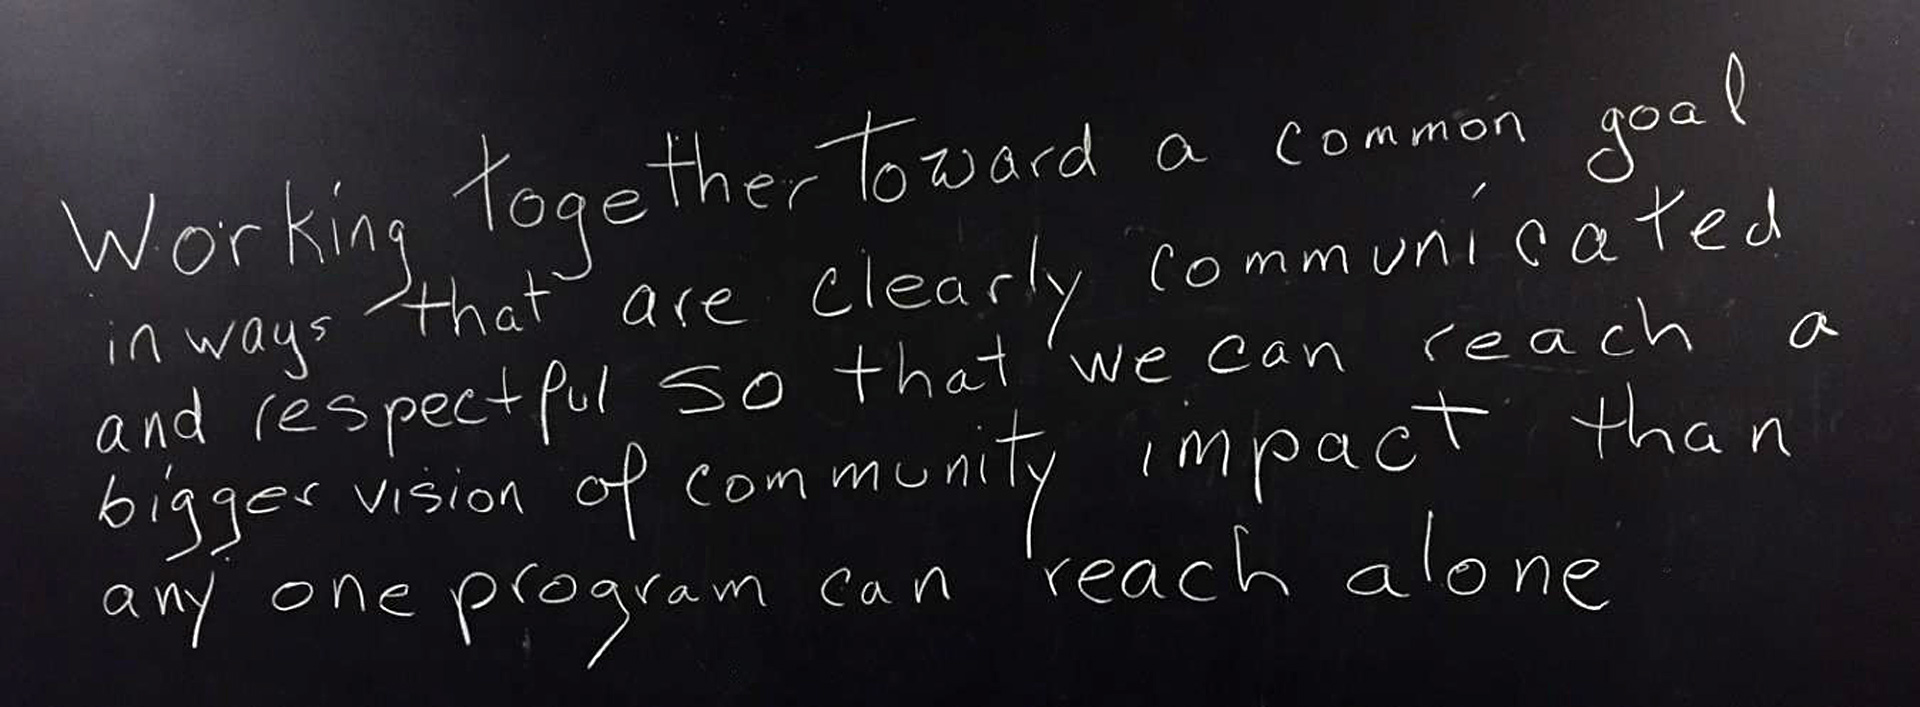 Working together Toward a common goal
in ways that are clearly communicated
and respectful so that we can reach a
bigger vision of community impact than
any one program can reach alone